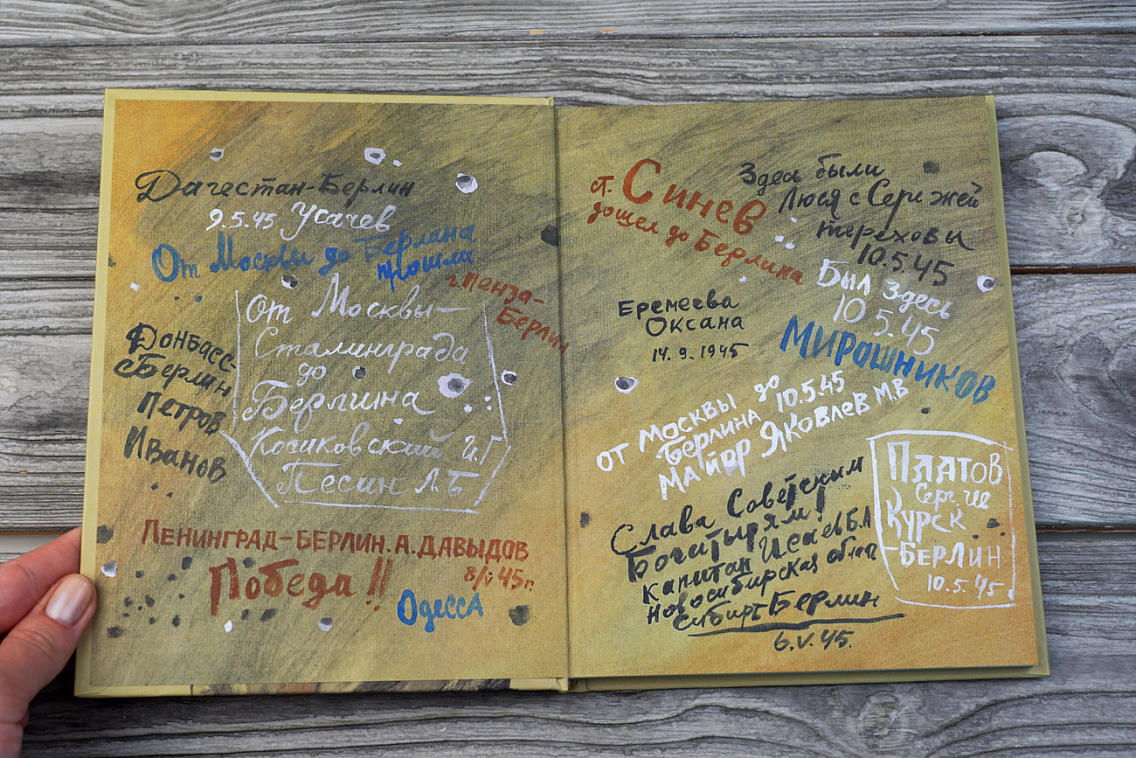 Дагестан-Берлин
9.5.45 Усачев
От Москвы до Берлина
прошли
г. Пенза-
Берлин
От Москвы-
Сталинграда
до
Берлина
Косиковский И.Г
Песин Л.Б
Донбасс-
Берлин
Петров
Иванов
ЛЕНИНГРАД-БЕРЛИН.А.ДАВЫДОВ
8/V 45г.
Победа!!
Одесса
ст. Синев
дошел до Берлина
Здесь были
Люся с Сережей
Тереховы
10.5.45
Был здесь
10 5.45
МИРОШНИКОВ
Еремеева
Оксана
14.9.1945
ОТ МОСКВЫ до
БЕРЛИНА 10.5.45
МАЙОР ЯКОВЛЕВ М.В
Слава Советским
Богатырям!
Капитан Исаев Б.А
Новосибирская обл
Сибирь-Берлин
6.V.45.
ПЛАТОВ
Сергей
Курск
-БЕРЛИН
10.5.45